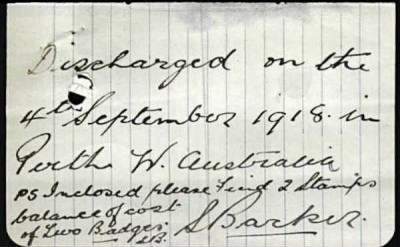 Discharged on the
4th September 1918. in
Perth W. Australia
PS Inclosed please Find 2 Stamps
balance of cost
of Two Badges. S Barker.
SB.